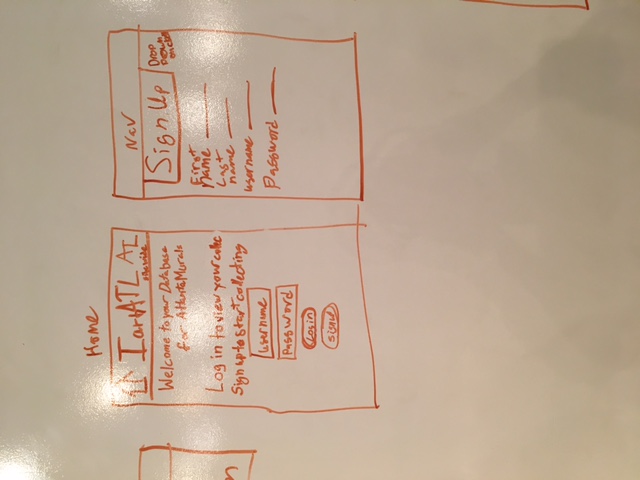 Home
I art ATL
Welcome to your Database
for Atlanta Murals
Log in to view your collec
Sign up to start collecting
username
Password
Login
signup
Nav
Sign Up
Drop
Down
First
name
Last
name
username
Password